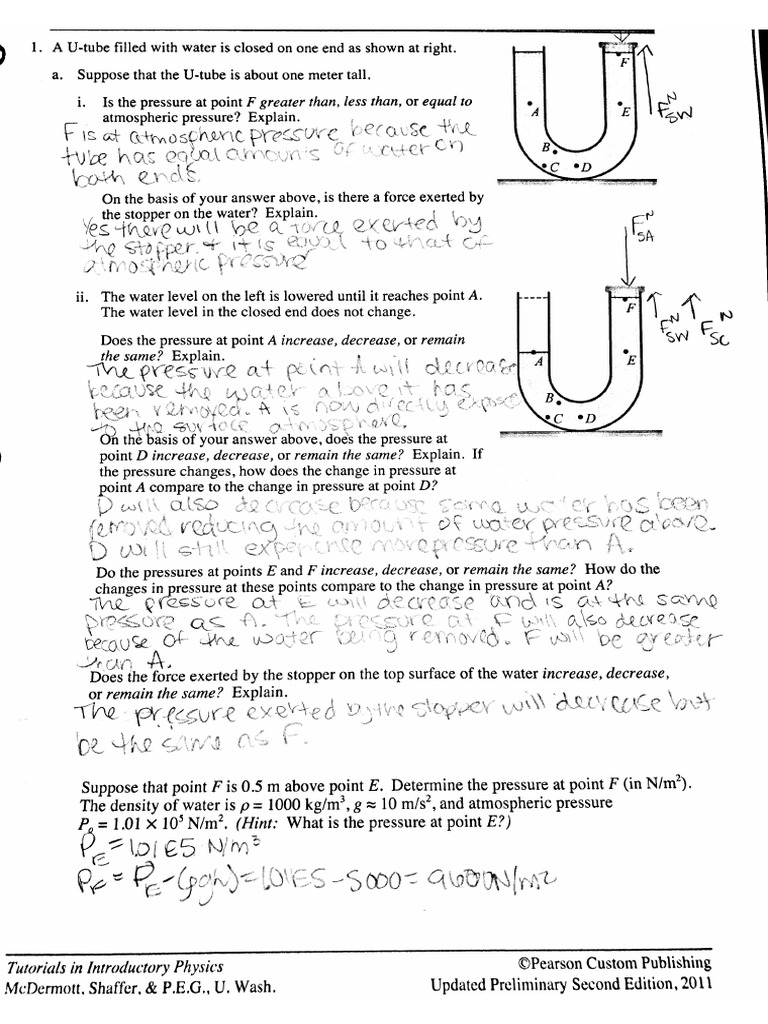 1. A U-tube filled with water is closed on one end as shown at right.
a. Suppose that the U-tube is about one meter tall.
i. Is the pressure at point F greater than, less than, or equal to
atmospheric pressure? Explain.
F is at atmospheric pressure because the
tube has equal amouns of water on
both ends.
On the basis of your answer above, is there a force exerted by
the stopper on the water? Explain.
Yes there will be a force exerted by
the stopper, + it is equal to that of
atmospheric pressure
F
A
E
B
C
D
F N SW
ii. The water level on the left is lowered until it reaches point A.
The water level in the closed end does not change.
Does the pressure at point A increase, decrease, or remain
the same? Explain.
The pressure at point A will decrease
because the water above it has
been removed. A is now directly expose
to the surface atmosphere.
F N SA
F
A
E
B
C
D
F N SW F N SC
On the basis of your answer above, does the pressure at
point D increase, decrease, or remain the same? Explain. If
the pressure changes, how does the change in pressure at
point A compare to the change in pressure at point D?
D will also decrease because some water has been
removed reducing the amount of water pressure above.
D will still experience more pressure than A.
Do the pressures at points E and F increase, decrease, or remain the same? How do the
changes in pressure at these points compare to the change in pressure at point A?
The pressure at E will decrease and is at the same
pressure as A. The pressure at F will also decrease
because of the water being removed. F will be greater
than A.
Does the force exerted by the stopper on the top surface of the water increase, decrease,
or remain the same? Explain.
The pressure exerted by the stopper will decrease but
be the same as F.
Suppose that point F is 0.5 m above point E. Determine the pressure at point F (in N/m²).
The density of water is ρ = 1000 kg/m³, g ≈ 10 m/s², and atmospheric pressure
Pₒ = 1.01 × 10⁵ N/m². (Hint: What is the pressure at point E?)
P_E = 1.01E5 N/m³
P_F = P_E - (ρgh) = 1.01E5 - 5000 = 96000N/m2
Tutorials in Introductory Physics
McDermott, Shaffer, & P.E.G., U. Wash.
©Pearson Custom Publishing
Updated Preliminary Second Edition, 2011